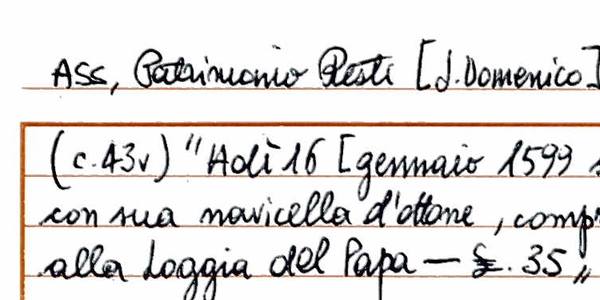 ASS, Patrimonio Resti [S. Domenico]
(c. 43v) "Adì 16 [gennaio 1599 s
con sua navicella d'ottone, comp
alla Loggia del Papa — £. 35„